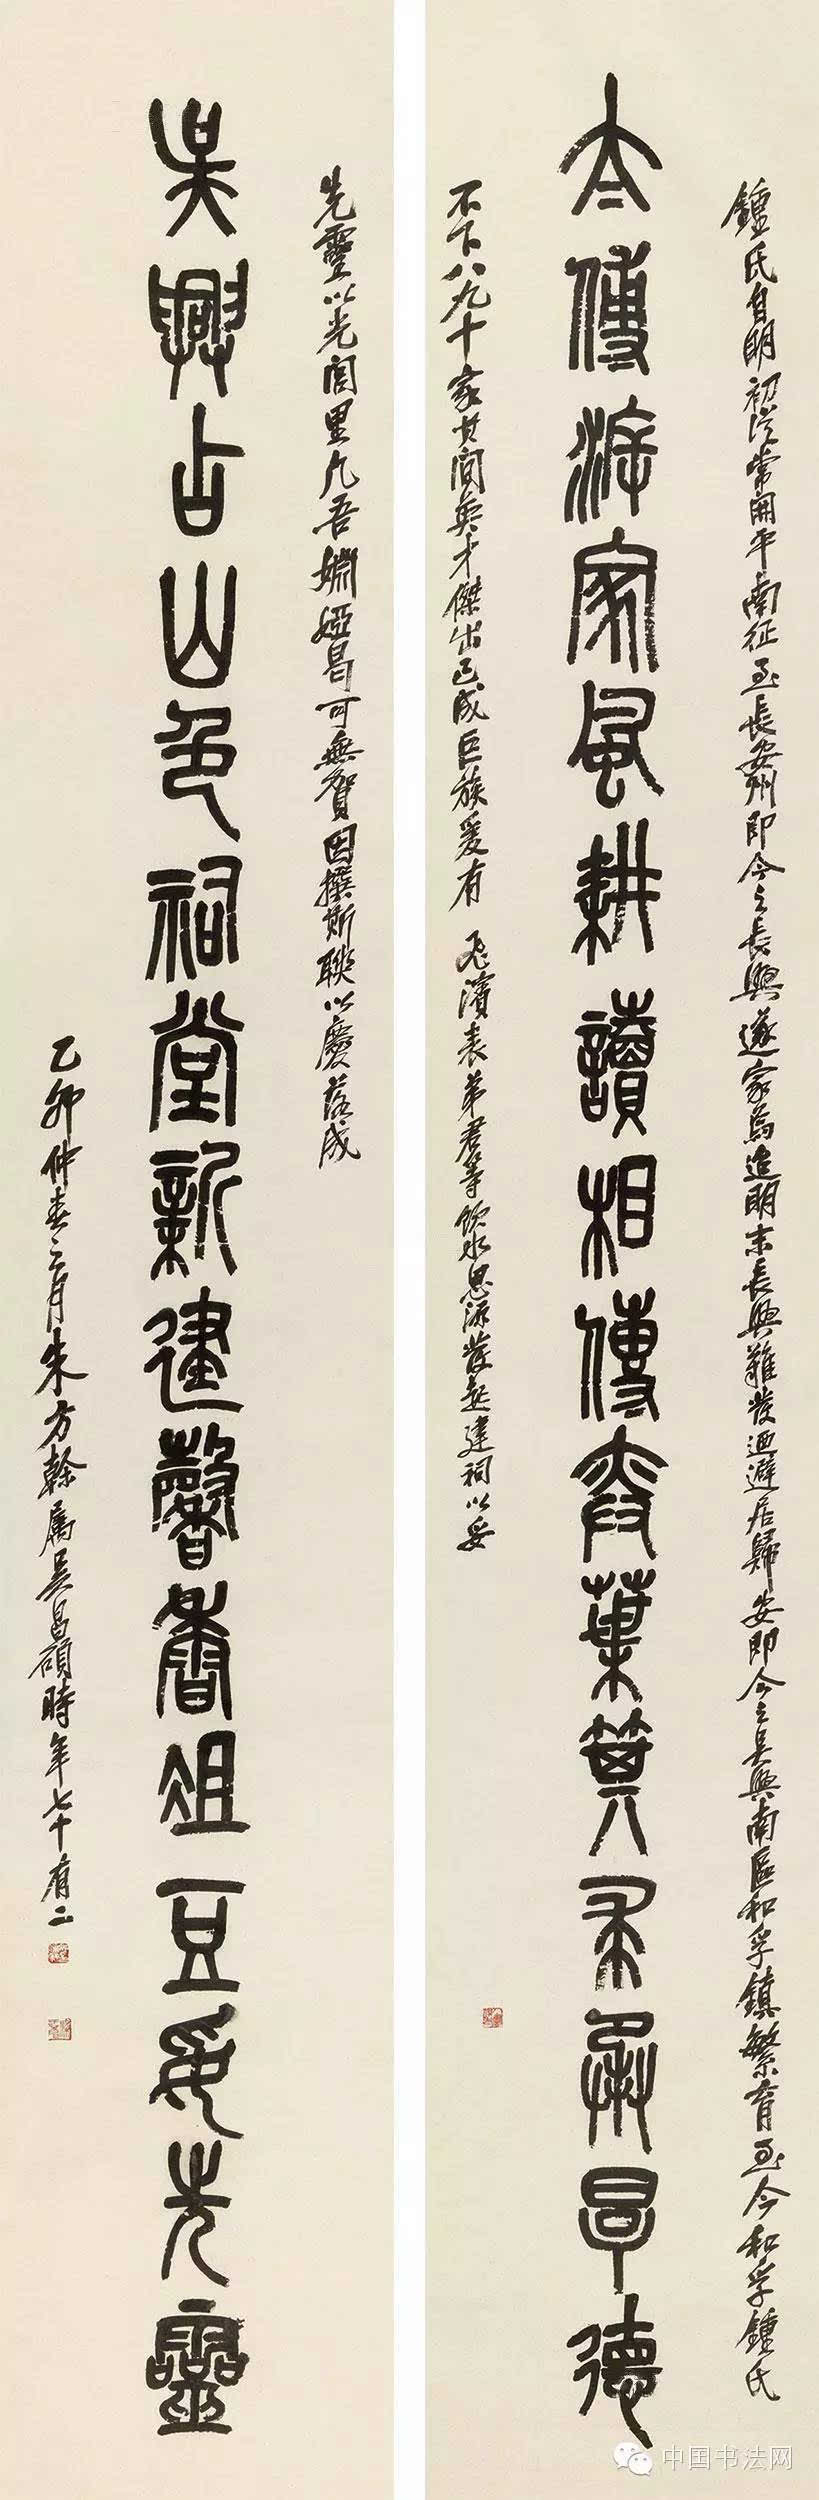 鍾氏自明初從常開平南征至長安州即今之長興遂家焉迨明末長興難發迺避居歸安即今之吳興南區和孚鎮繁育至今和孚鍾氏
太傅泝家風耕讀相傳奕葉箕裘承厚德
不下八九十家其間英才傑出已成巨族爰有 濱表弟君等飲水思源發起建祠以妥
先靈以光閭里凡吾姻婭曷可無賀因撰斯聯以慶落成
吳興占山色祠堂新建馨香俎豆妥先靈
乙卯仲春之月朱方榦屬吳昌碩時年七十有二
中国书法网